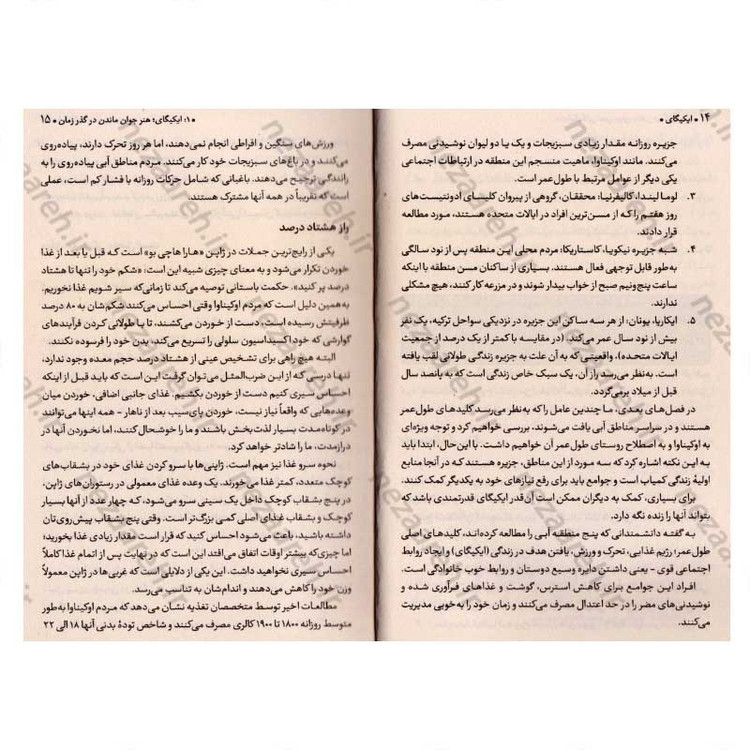 ۱۴ • ایکیگای •
جزیره روزانه مقدار زیادی سبزیجات و یک یا دو لیوان نوشیدنی مصرف
می‌کنند. مانند اوکیناوا، ماهیت منسجم این منطقه در ارتباطات اجتماعی
یکی دیگر از عوامل مرتبط با طول عمر است.
۳. لوما لیندا، کالیفرنیا: محققان، گروهی از پیروان کلیسای ادونتیست‌های
روز هفتم را که از مسن‌ترین افراد در ایالات متحده هستند، مورد مطالعه
قرار دادند.
۴. شبه جزیره نیکویا، کاستاریکا: مردم محلی این منطقه پس از نود سالگی
به‌طور قابل توجهی فعال هستند. بسیاری از ساکنان مسن منطقه با اینکه
ساعت پنج‌ونیم صبح از خواب بیدار شوند و در مزرعه کار کنند، هیچ مشکلی
ندارند.
۵. ایکاریا، یونان: از هر سه ساکن این جزیره در نزدیکی سواحل ترکیه، یک نفر
بیش از نود سال عمر می‌کند (در مقایسه با کمتر از یک درصد از جمعیت
ایالات متحده)، واقعیتی که به آن علت به جزیره زندگی طولانی لقب یافته
است. به‌نظر می‌رسد راز آن، یک سبک خاص زندگی است که به پانصد سال
قبل از میلاد برمی‌گردد.
در فصل‌های بعدی، ما چندین عامل را که به‌نظر می‌رسد کلیدهای طول‌عمر
هستند و در سراسر مناطق آبی یافت می‌شوند، بررسی خواهیم کرد و توجه ویژه‌ای
به اوکیناوا و به اصطلاح روستای طول‌عمر آن خواهیم داشت. با این‌حال، ابتدا باید
به این نکته اشاره کرد که سه مورد از این مناطق، جزیره هستند که در آنجا منابع
اولیهٔ زندگی کمیاب است و جوامع باید برای رفع نیازهای خود به یکدیگر کمک کنند.
برای بسیاری، کمک به دیگران ممکن است آن‌قدر ایکیگای قدرتمندی باشد که
بتواند آنها را زنده نگه دارد.
به گفته دانشمندانی که پنج منطقه آبی را مطالعه کرده‌اند، کلیدهای اصلی
طول‌عمر؛ رژیم غذایی، تحرک و ورزش، یافتن هدف در زندگی (ایکیگای) و ایجاد روابط
اجتماعی قوی - یعنی داشتن دایره وسیع دوستان و روابط خوب خانوادگی است.
افراد این جوامع برای کاهش استرس، گوشت و غذاهای فرآوری شده و
نوشیدنی‌های مضر را در حد اعتدال مصرف می‌کنند و زمان خود را به‌خوبی مدیریت
می‌کنند.
۱: ایکیگای؛ هنر جوان ماندن در گذر زمان • ۱۵
ورزش‌های سنگین و افراطی انجام نمی‌دهند، اما هر روز تحرک دارند، پیاده‌روی
می‌کنند و در باغ‌های سبزیجات خود کار می‌کنند. مردم مناطق آبی پیاده‌روی را به
رانندگی ترجیح می‌دهند. باغبانی که شامل حرکات روزانه با فشار کم است، عملی
است که تقریباً در همه آنها مشترک هستند.
راز هشتاد درصد
یکی از رایج‌ترین جملات در ژاپن «هارا هاچی بو» است که قبل یا بعد از غذا
خوردن تکرار می‌شود و به معنای چیزی شبیه این است: «شکم خود را تنها تا هشتاد
درصد پر کنید». حکمت باستانی توصیه می‌کند تا زمانی‌که سیر شویم غذا نخوریم.
به‌همین دلیل است که مردم اوکیناوا وقتی احساس می‌کنند شکم‌شان به ۸۰ درصد
ظرفیتش رسیده است، دست از خوردن می‌کشند، تا با طولانی کردن فرآیندهای
گوارشی که خود اکسیداسیون سلولی را تسریع می‌کند، بدن خود را فرسوده نکنند.
البته هیچ راهی برای تشخیص عینی از هشتاد درصد حجم معده وجود ندارد،
تنها درسی که از این ضرب‌المثل می‌توان گرفت این است که باید قبل از اینکه
احساس سیری کنیم دست از خوردن بکشیم. غذای جانبی اضافی، خوردن
وعده‌هایی که واقعاً نیاز نیست، خوردن پای‌سیب بعد از ناهار - همه اینها می‌توانند
در کوتاه‌مدت بسیار لذت‌بخش باشند و ما را خوشحال کنند، اما نخوردن آنها در
درازمدت، ما را شادتر خواهد کرد.
نحوه سرو غذا نیز مهم است. ژاپنی‌ها با سرو کردن غذای خود در بشقاب‌های
کوچک متعدد، کمتر غذا می‌خورند. یک وعده غذای معمولی در رستوران‌های ژاپن،
در پنج بشقاب کوچک داخل یک سینی سرو می‌شود، که چهار عدد از آنها بسیار
کوچک و بشقاب غذای اصلی کمی بزرگ‌تر است. وقتی پنج بشقاب پیش روی‌تان
داشته باشید، باعث می‌شود احساس کنید که قرار است مقدار زیادی غذا بخورید؛
اما چیزی‌که بیشتر اوقات اتفاق می‌افتد این است که در نهایت پس از اتمام غذا کاملاً
احساس سیری نخواهید داشت. این یکی از دلایلی است که غربی‌ها در ژاپن معمولاً
وزن خود را کاهش می‌دهند و اندام‌شان به تناسب می‌رسد.
مطالعات اخیر توسط متخصصان تغذیه نشان می‌دهد که مردم اوکیناوا به‌طور
متوسط روزانه ۱۸۰۰ تا ۱۹۰۰ کالری مصرف می‌کنند و شاخص تودهٔ بدنی آنها ۱۸ الی ۲۲
nezaareh.ir